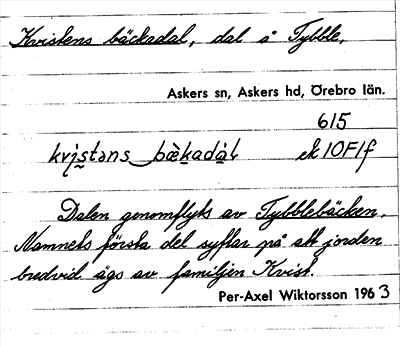 Kvistens bäckadal, dal å Tybble,
Askers sn, Askers hd, Örebro län.
615
kvi̯stəns bæ̀kadàl ek 10F1f
Dalen genomflyts av Tybblebäcken.
Namnets första del syftar på att jorden
bredvid ägs av familjen Kvist.
Per-Axel Wiktorsson 1963